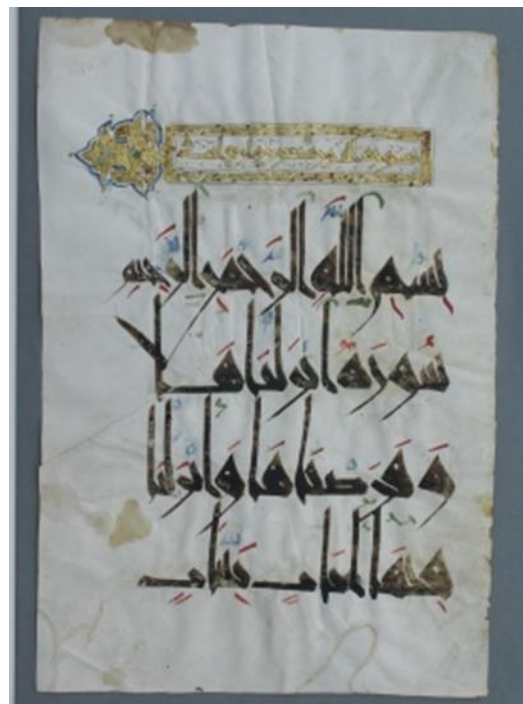 بسم الله الرحمن الرحيم
سورة انزلناها
وفرضناها وانزلنا
فيها ايات بينات